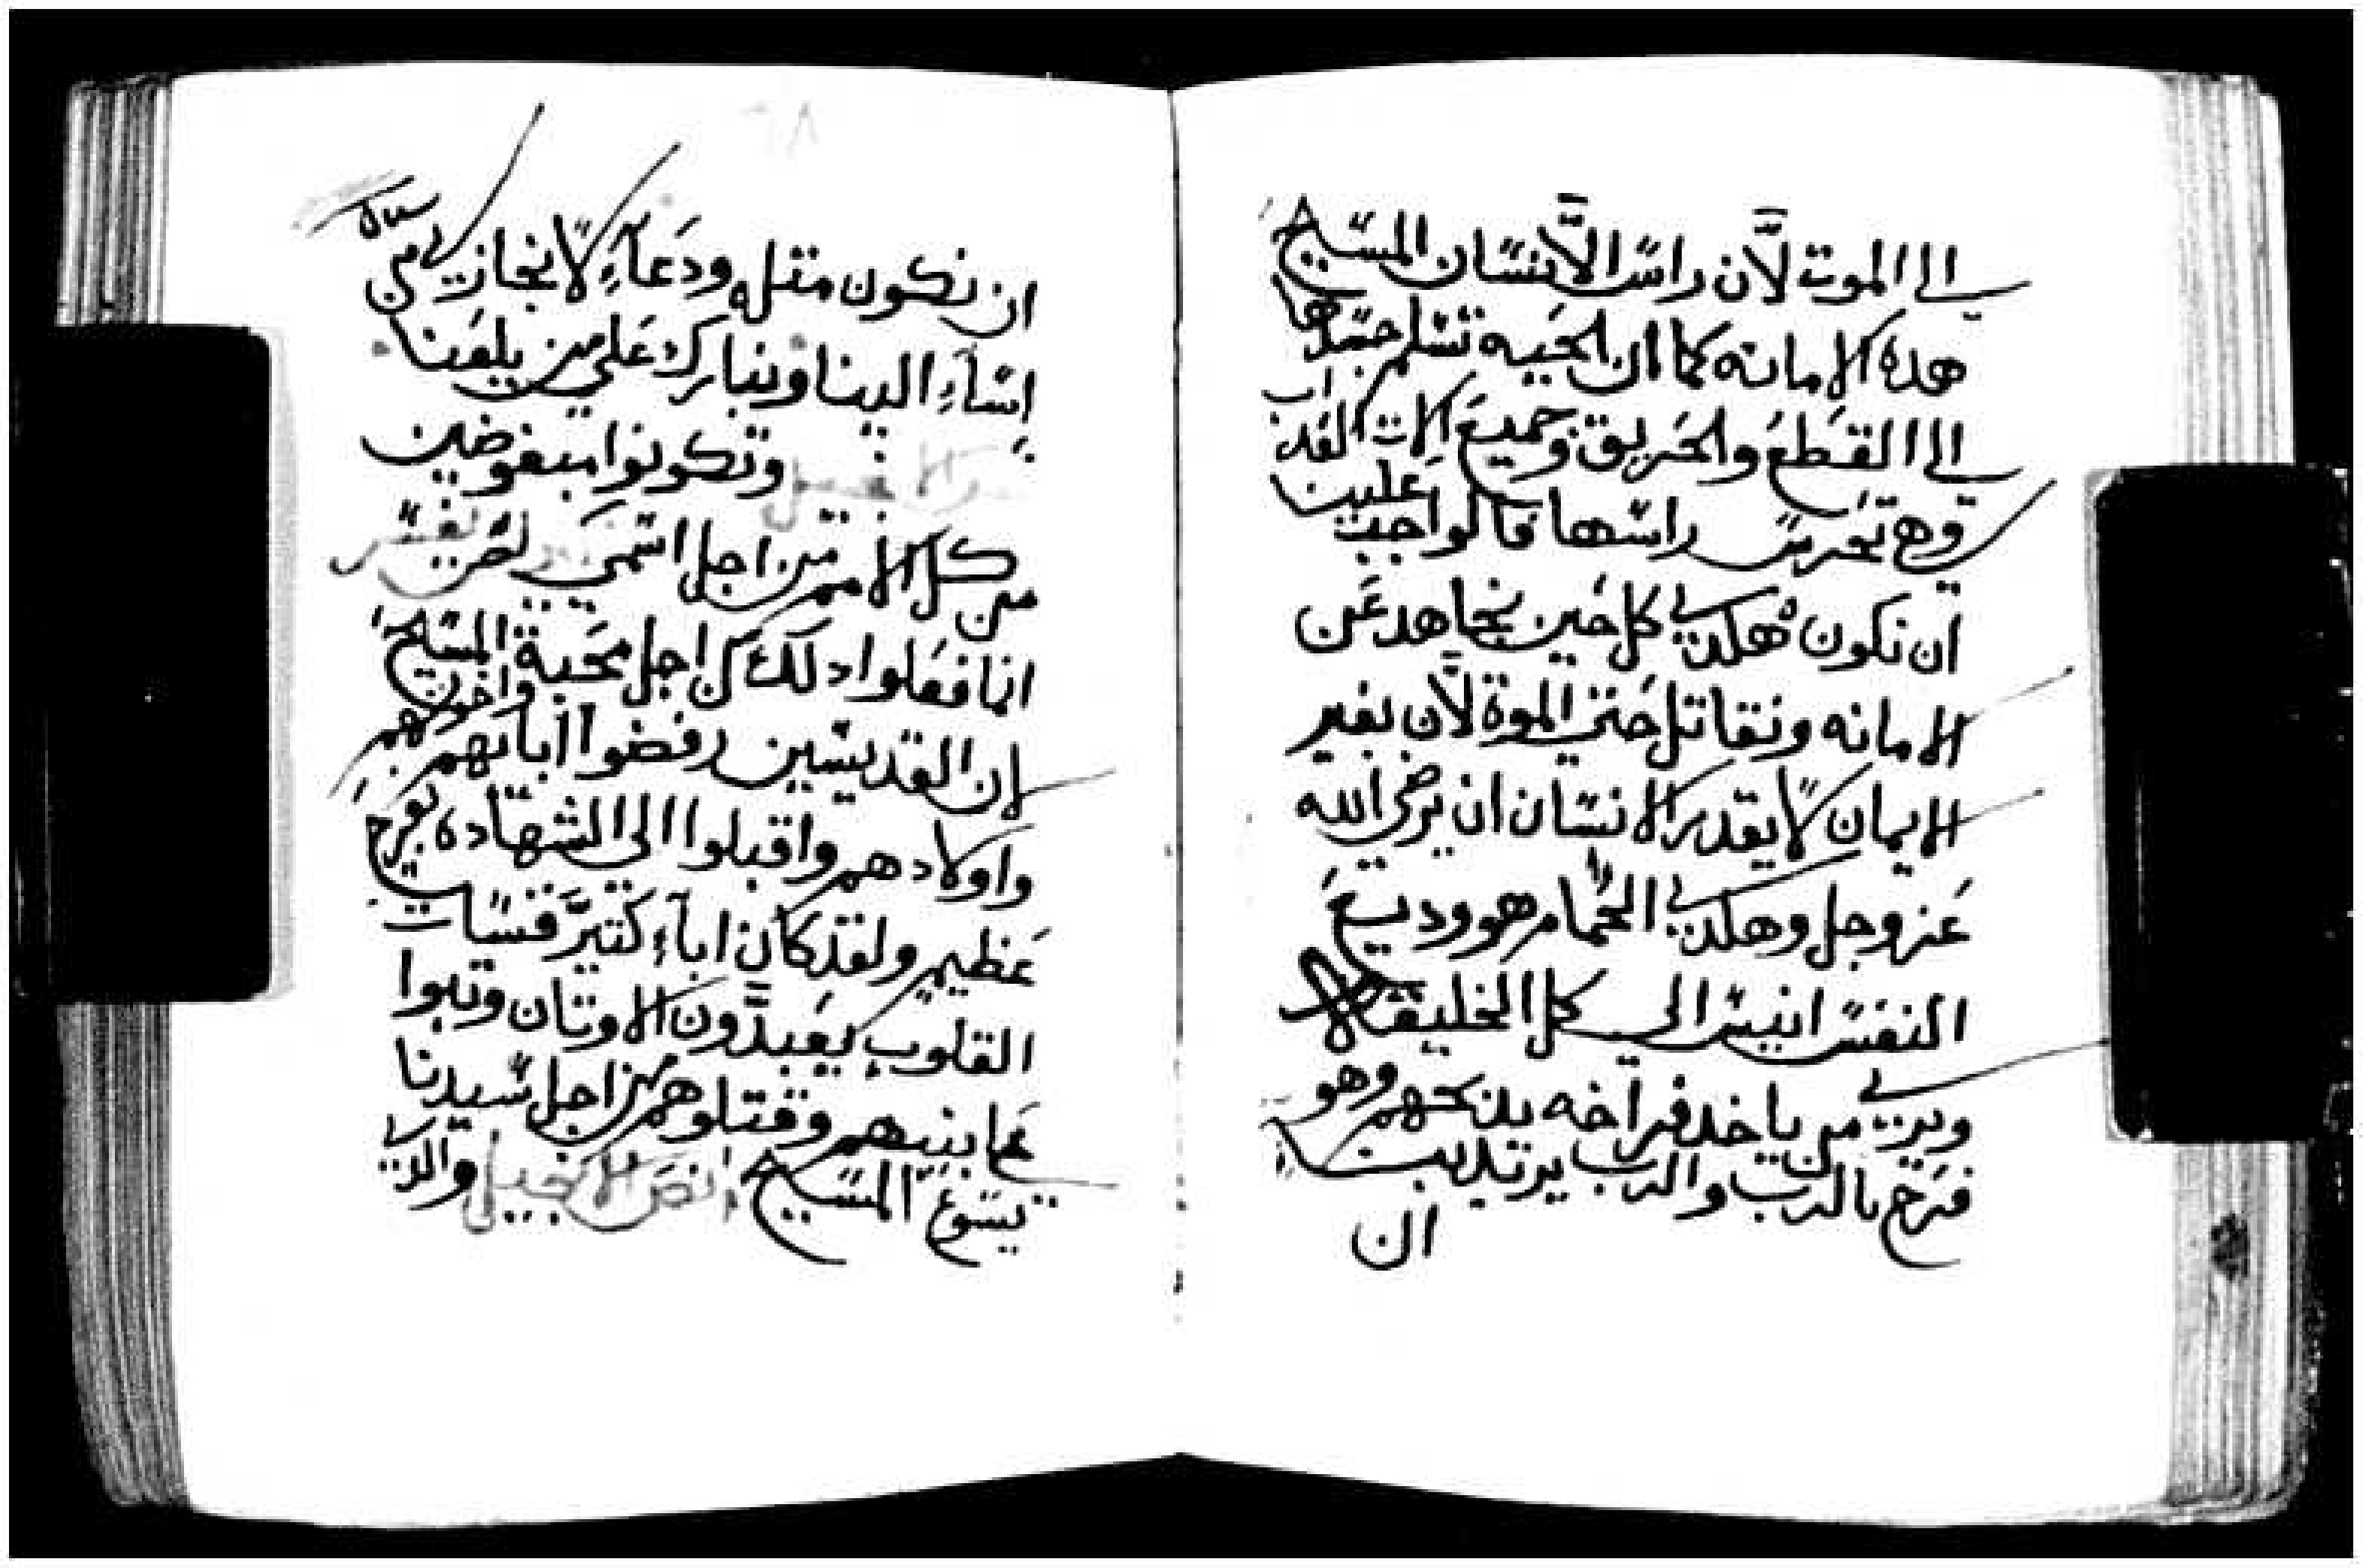 الى الموت لأن راس الأنسان المسيح
هده الامانه كما ان الحيه تسلم جسدها
الى القطع والحريق وجميع الات العداب
وهى تحرس راسها فالواجب علينا
ان نكون هكدى كل حين نجاهد عن
الامانه ونقاتل حتى الموة لأن بغير
الايمان لا يقدر الانسان ان يرضى الله
عز وجل وهكدى الحمام هو وديع
النفس انيس الى كل الخليقه
ويرى من ياخد فراخه يدبحهم وهو
فرح بالرب والرب يريد بنا
ان
ان نكون مثله ودعآء لا نجازى من
اسآء الينا ونبارك على من يلعننا
نص الانجيل وتكونوا مبغوضين
من كل الامم من اجل اسمى تفسير
انما فعلوا دلك من اجل محبة المسيح
ان القديسين رفضوا ابائهم واخوتهم
واولادهم واقبلوا الى الشهاده بفرح
عظيم ولقد كان ابآء كتير قسات
القلوب يعبدون الاوتان وتبوا
على بنيهم وقتلوهم من اجل سيدنا
يسوع المسيح نص الانجيل والدى